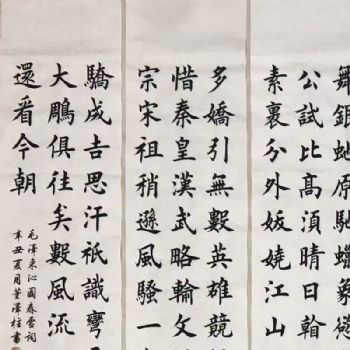 舞銀虵原馳蠟象
公試比髙湏晴日
素裹分外妖娆江山
多嬌引無數英雄競
惜秦皇漢武略輸文
宗宋祖稍遜風騷一
驕成吉思汗衹識彎
大鵰俱往矣數風流
還看今朝
毛澤東沁園春雪詞
辛丑夏月董澤柱書